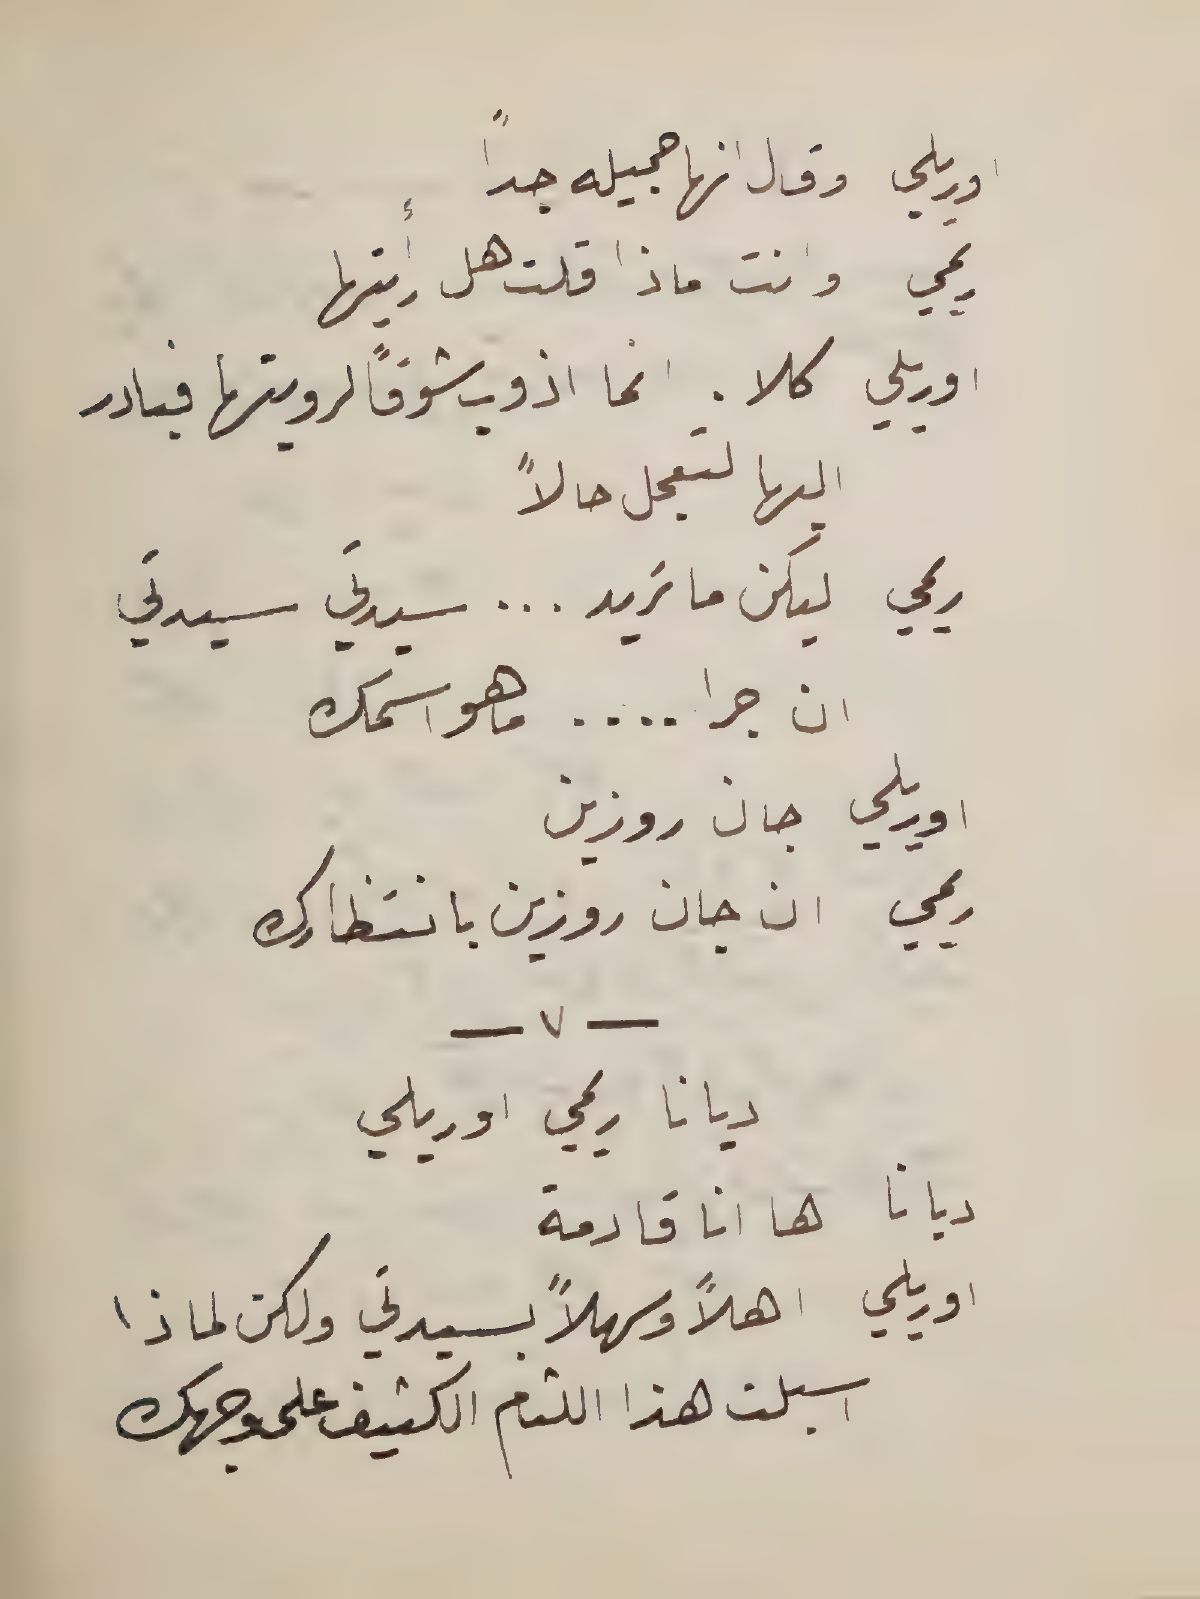 اوريلي وقال انها جميله جداً
ريمي وانت ماذا قلت هل رأيتها
اوريلي كلا. انما اذوب شوقاً لرويتها فبادر
اليها لتعجل حالاً
ريمي ليكن ما تريد ... سيدتي سيدتي
ان جرا .... ما هو اسمك
اوريلي جان روزين
ريمي ان جان روزين بانتظارك
— ٧ —
ديانا ريمي اوريلي
ديانا ها انا قادمة
اوريلي اهلاً وسهلاً بسيدتي ولكن لماذا
اسبلت هذا اللثام الكثيف على وجهك